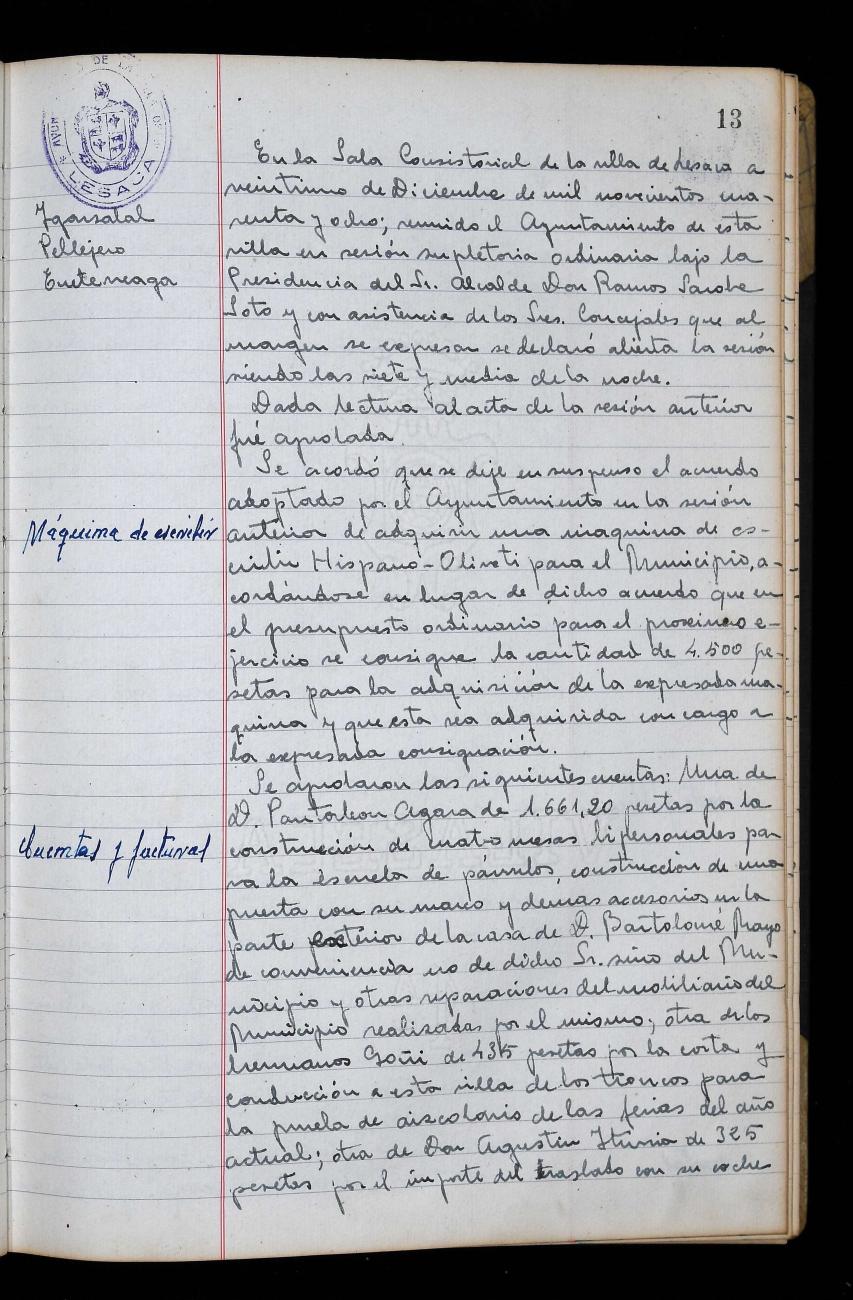 13
AYUN DE LA
LESACA
Igarzabal
Pellejero
Errotoneaga
En la Sala Consistorial de la villa de Lesaca a
veintiuno de Diciembre de mil novecientos cua-
renta y ocho; reunido el Ayuntamiento de esta
villa en sesión supletoria ordinaria bajo la
Presidencia del Sr. Alcalde Don Ramos Sarobe
Soto y con asistencia de los Sres. Concejales que al
margen se expresan se declaró abierta la sesión
siendo las siete y media de la noche.
Dada lectura al acta de la sesión anterior
fué aprobada.
Se acordó que se deje en suspenso el acuerdo
adoptado por el Ayuntamiento en la sesión
Máquina de escribir
anterior de adquirir una maquina de es-
cribir Hispano-Oliveti para el Municipio, a-
cordándose en lugar de dicho acuerdo que en
el presupuesto ordinario para el proximo e-
jercicio se consigne la cantidad de 4.500 pe-
setas para la adquisición de la expresada ma-
quina y que esta sea adquirida con cargo a
la expresada consignación.
Se aprobaron las siguientes cuentas: Una de
D. Pantaleon Agara de 1.661,20 pesetas por la
Cuentas y facturas
construcción de cuatro mesas bipersonales pa-
ra la escuela de párvulos, construcción de una
puerta con su marco y demas accesorios en la
parte exterior de la casa de D. Bartolomé Mayo
de conveniencia no de dicho Sr. sino del Mu-
nicipio y otras reparaciones del mobiliario del
Municipio realizadas por el mismo; otra de los
hermanos Goñi de 435 pesetas por la corta y
conducción a esta villa de los troncos para
la prueba de aizcolaris de las ferias del año
actual; otra de Don Agustin Iturria de 325
pesetas por el importe del traslado con su coche